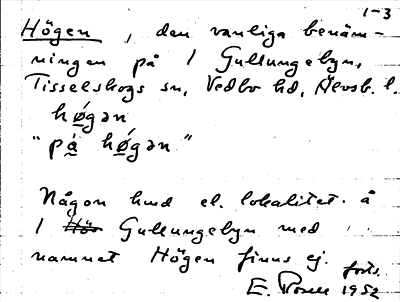 1-3
Högen, den vanliga benäm-
ningen på 1 Gullungebyn,
Tisselskogs sn, Vedbo hd, Älvsb. l.
hø̂gan
"på hø̂gan"
Någon hmd el. lokalitet å
1 Hös Gullungebyn med
namnet Högen finns ej.
forts.
E. Rosell 1952